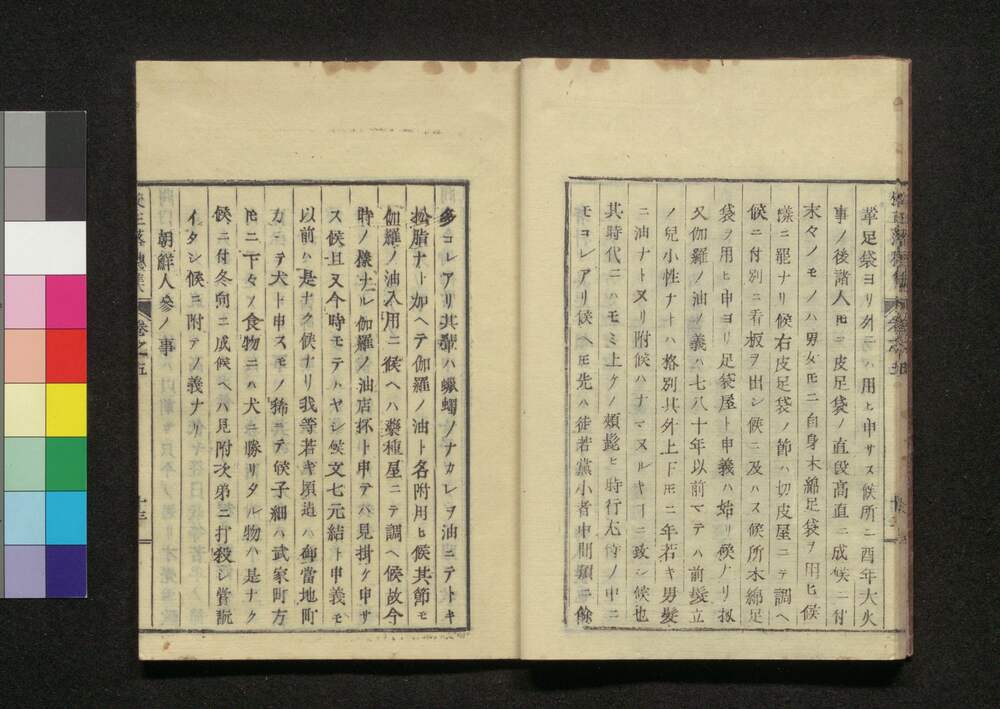 革足袋ヨリ外ニハ用ヒ申サス候所ニ酉年大火
事ノ後諸人𪜈ニ皮足袋ノ直段高直ニ成候ニ付
末々ノモノハ男女𪜈ニ自身木綿足袋ヲ用ヒ候
様ニ罷ナリ候右皮足袋ノ節ハ切皮屋ニテ調ヘ
候ニ付別ニ看板ヲ出シ候ニ及ハス候所木綿足
袋ヲ用ヒ申ヨリ足袋屋ト申義ハ始リ候ノリ扨
又伽羅ノ油ノ義ハ七八十年以前マテハ前髪立
ノ兒小性ナトハ格別其外上下𪜈ニ年若キ男髪
ニ油ナトヌリ附候ハナマヌルキヿニ致シ候也
其時代ニハモミ上ケノ頬髭ヒ時行大侍ノ中ニ
モコレアリ候ヘ𪜈先ハ徒若黨小者中間類ニ餘
多コレアリ其輩ハ蠟燭ノナカレヲ油ニテトキ
松脂ナトカヘテ伽羅ノ油ト名附用ヒ候其節モ
伽羅ノ油入用ニ候ヘハ藥種屋ニテ調ヘ候故今
時ノ様ナル伽羅ノ油店抔ト申テハ見掛ケ申サ
ス候且又今時モテハヤシ候文七元結ト申義モ
以前ハ是ナク候ナリ我等若キ頃迠ハ御當地町
方ニテ犬ト申スモノ稀ニテ候子細ハ武家町方
𪜈ニ下々ノ食物ニハ犬ニ勝リタル物ハ是ナク
候ニ付冬向ニ成候ヘハ見附次第ニ打殺シ賞翫
イタシ候ニ附テノ義ナリ
朝鮮人參ノ事
卷之五